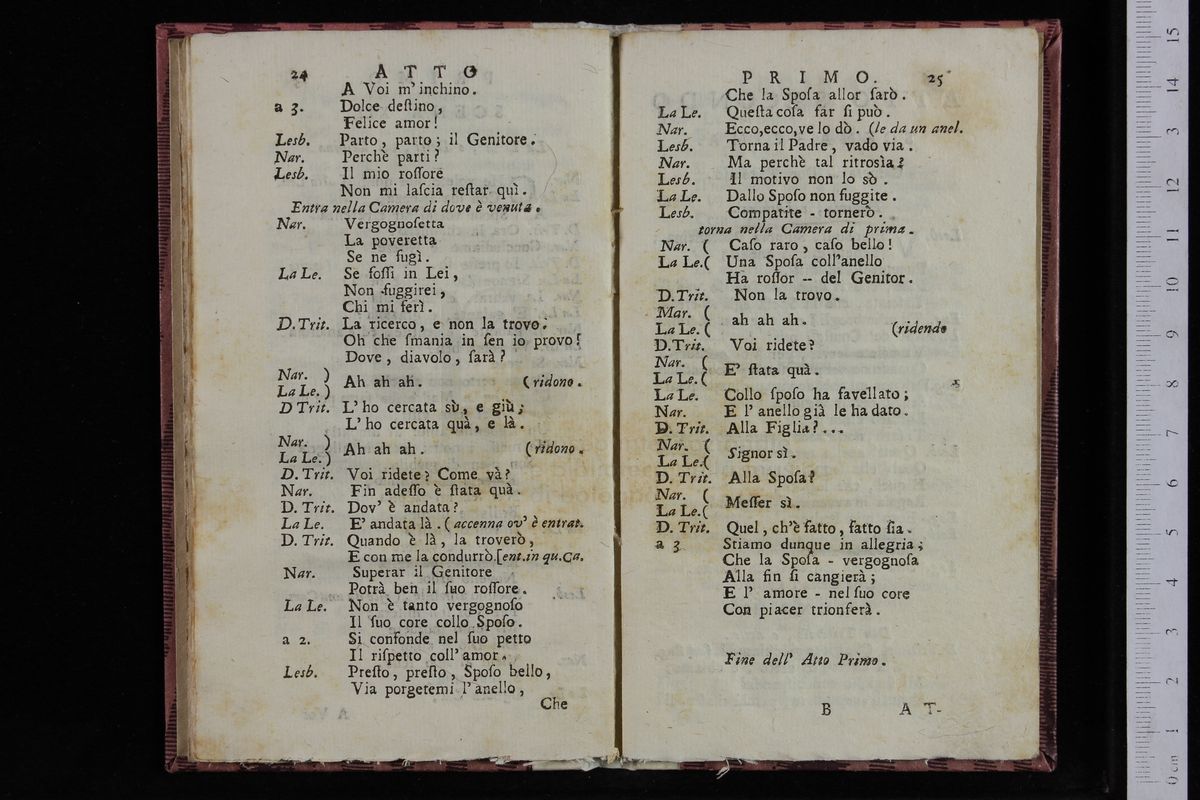 24 ATTO
A Voi m'inchino.
a 3. Dolce deſtino,
Felice amor!
Lesb. Parto, parto; il Genitore.
Nar. Perchè parti?
Lesb. Il mio roſſore
Non mi laſcia reſtar quì.
Entra nella Camera di dove è venuta.
Nar. Vergognoſetta
La poveretta
Se ne fugì.
La Le. Se foſſi in Lei,
Non fuggirei,
Chi mi ferì.
D. Trit. La ricerco, e non la trovo.
Oh che ſmania in ſen io provo!
Dove, diavolo, ſarà?
Nar. )
La Le. ) Ah ah ah. (ridono.
D Trit. L'ho cercata sù, e giù;
L'ho cercata quà, e là.
Nar. )
La Le. ) Ah ah ah. (ridono.
D. Trit. Voi ridete? Come và?
Nar. Fin adeſſo è ſtata quà.
D. Trit. Dov' è andata?
La Le. E' andata là. (accenna ov' è entrat.
D. Trit. Quando è là, la troverò,
E con me la condurrò. [ent. in qu. Ca.
Nar. Superar il Genitore
Potrà ben il ſuo roſſore.
La Le. Non è tanto vergognoſo
Il ſuo core collo Spoſo.
a 2. Si confonde nel ſuo petto
Il riſpetto coll' amor.
Lesb. Preſto, preſto, Spoſo bello,
Via porgetemi l'anello,
Che
PRIMO. 25
Che la Spoſa allor ſarò.
La Le. Queſta coſa far ſi può.
Nar. Ecco, ecco, ve lo dò. (le da un anel.
Lesb. Torna il Padre, vado via.
Nar. Ma perchè tal ritrosìa?
Lesb. Il motivo non lo sò.
La Le. Dallo Spoſo non fuggite.
Lesb. Compatite - tornerò.
torna nella Camera di prima.
Nar. ( Caſo raro, caſo bello!
La Le. ( Una Spoſa coll'anello
Ha roſſor -- del Genitor.
D. Trit. Non la trovo.
Mar. (
La Le. ( ah ah ah. (ridendo
D. Trit. Voi ridete?
Nar. (
La Le. ( E' ſtata quà.
La Le. Collo ſpoſo ha favellato;
Nar. E l' anello già le ha dato.
D. Trit. Alla Figlia?...
Nar. (
La Le. ( Signor sì.
D. Trit. Alla Spoſa?
Nar. (
La Le. ( Meſſer sì.
D. Trit. Quel, ch'è fatto, fatto ſia.
a 3 Stiamo dunque in allegria;
Che la Spoſa - vergognoſa
Alla fin ſi cangierà;
E l' amore - nel ſuo core
Con piacer trionferà.
Fine dell' Atto Primo.
B AT-